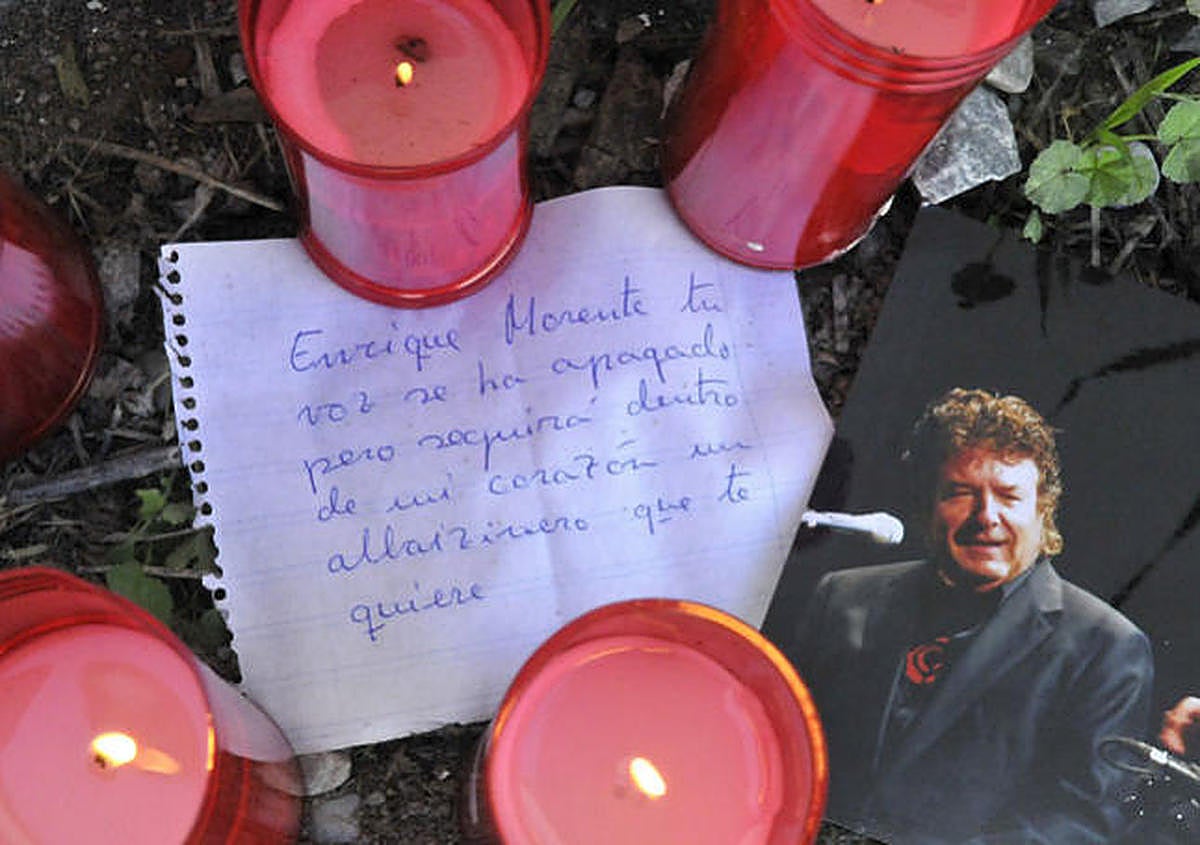 Enrique Morente tu
voz se ha apagado
pero seguirá dentro
de mi corazón un
albaizinero que te
quiere